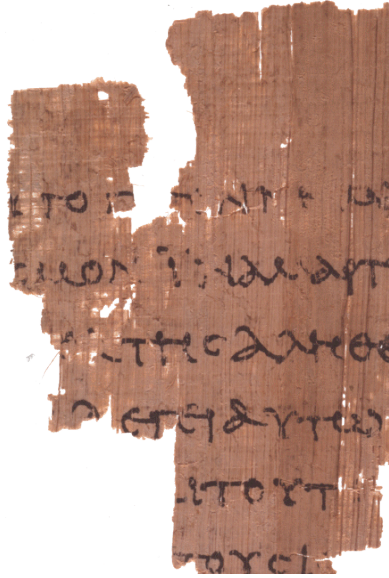 ΤΟ Γ ΝΝΗ
ϹΜΟΝ ΙΝΑ ΜΑΡΤ
Κ ΤΗϹ ΑΛΗΘΕ
ΛΕΓΕΙ ΑΥΤΩ
ΑΙ ΤΟΥΤ
ΤΟΥϹ Ι